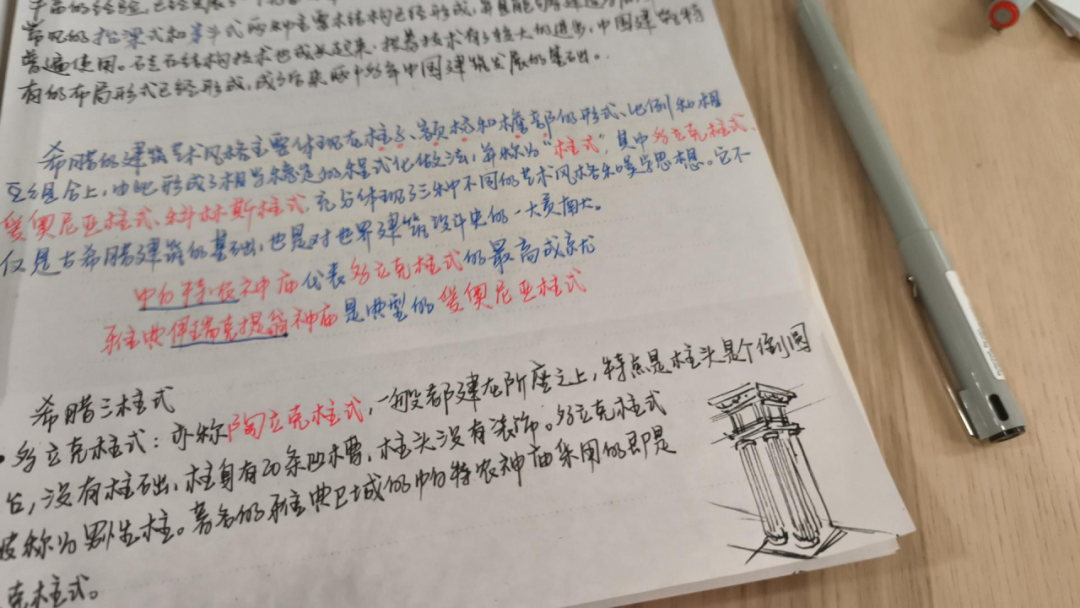 常见的抬梁式和穿斗式两种主要木结构已经形成,
普遍使用。石结构技术也成长起来,技术有了较大的进步,中国建筑特
有的布局形式已经形成,成了后来两千多年中国建筑发展的基础。
希腊的建筑艺术风格主要体现在柱、额枋和檐部的形式、比例和相
互组合上,由此形成了相当稳定的程式化做法,并称为“柱式”,其中多立克柱式、
爱奥尼亚柱式、科林斯柱式,充分体现了三种不同的艺术风格和美学思想。它不
仅是古希腊建筑的基础,也是对世界建筑设计史的一大贡献。
帕特农神庙代表多立克柱式的最高成就
雅典伊瑞克提翁神庙是典型的爱奥尼亚柱式
希腊三柱式
• 多立克柱式:亦称陶立克柱式,一般都建在阶座之上,特点是柱头是个倒圆
台,没有柱础,柱身有20条凹槽,柱头没有装饰。多立克柱式
被称为男性柱。著名的雅典卫城的帕特农神庙采用的即是
克柱式。